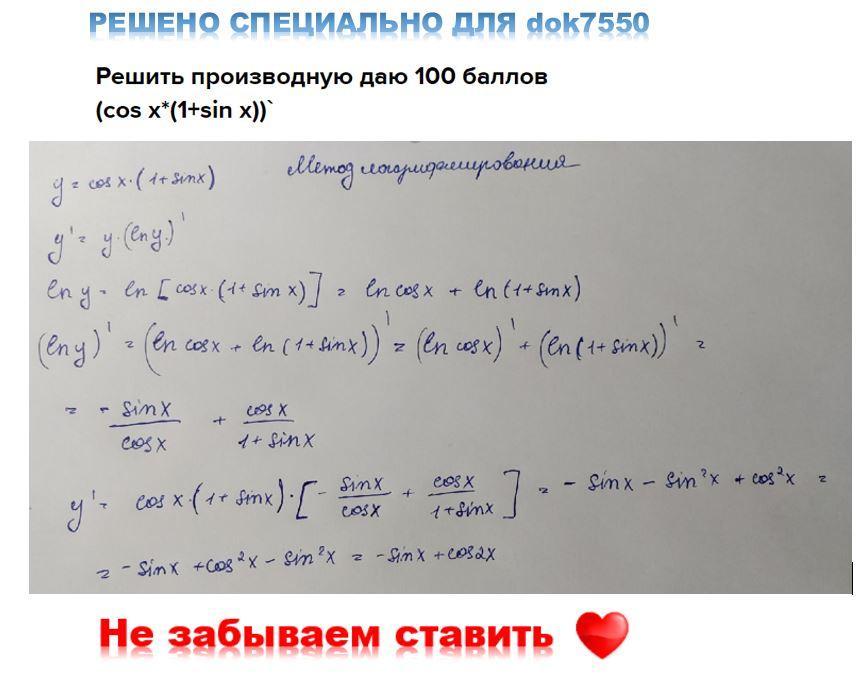 РЕШЕНО СПЕЦИАЛЬНО ДЛЯ dok7550
Решить производную даю 100 баллов
(cos x*(1+sin x))`
Метод логарифмирования
y = cos x·(1+sinx)
y' = y·(ln y)'
ln y = ln [cosx·(1+sin x)] = ln cosx + ln(1+sinx)
(ln y)' = (ln cosx + ln(1+sinx))' = (ln cosx)' + (ln(1+sinx))' =
= - sinx/cosx + cosx/1+sinx
y' = cos x·(1+sinx)·[- sinx/cosx + cosx/1+sinx] = - sinx - sin²x + cos²x =
= - sinx + cos²x - sin²x = - sinx + cos2x
Не забываем ставить